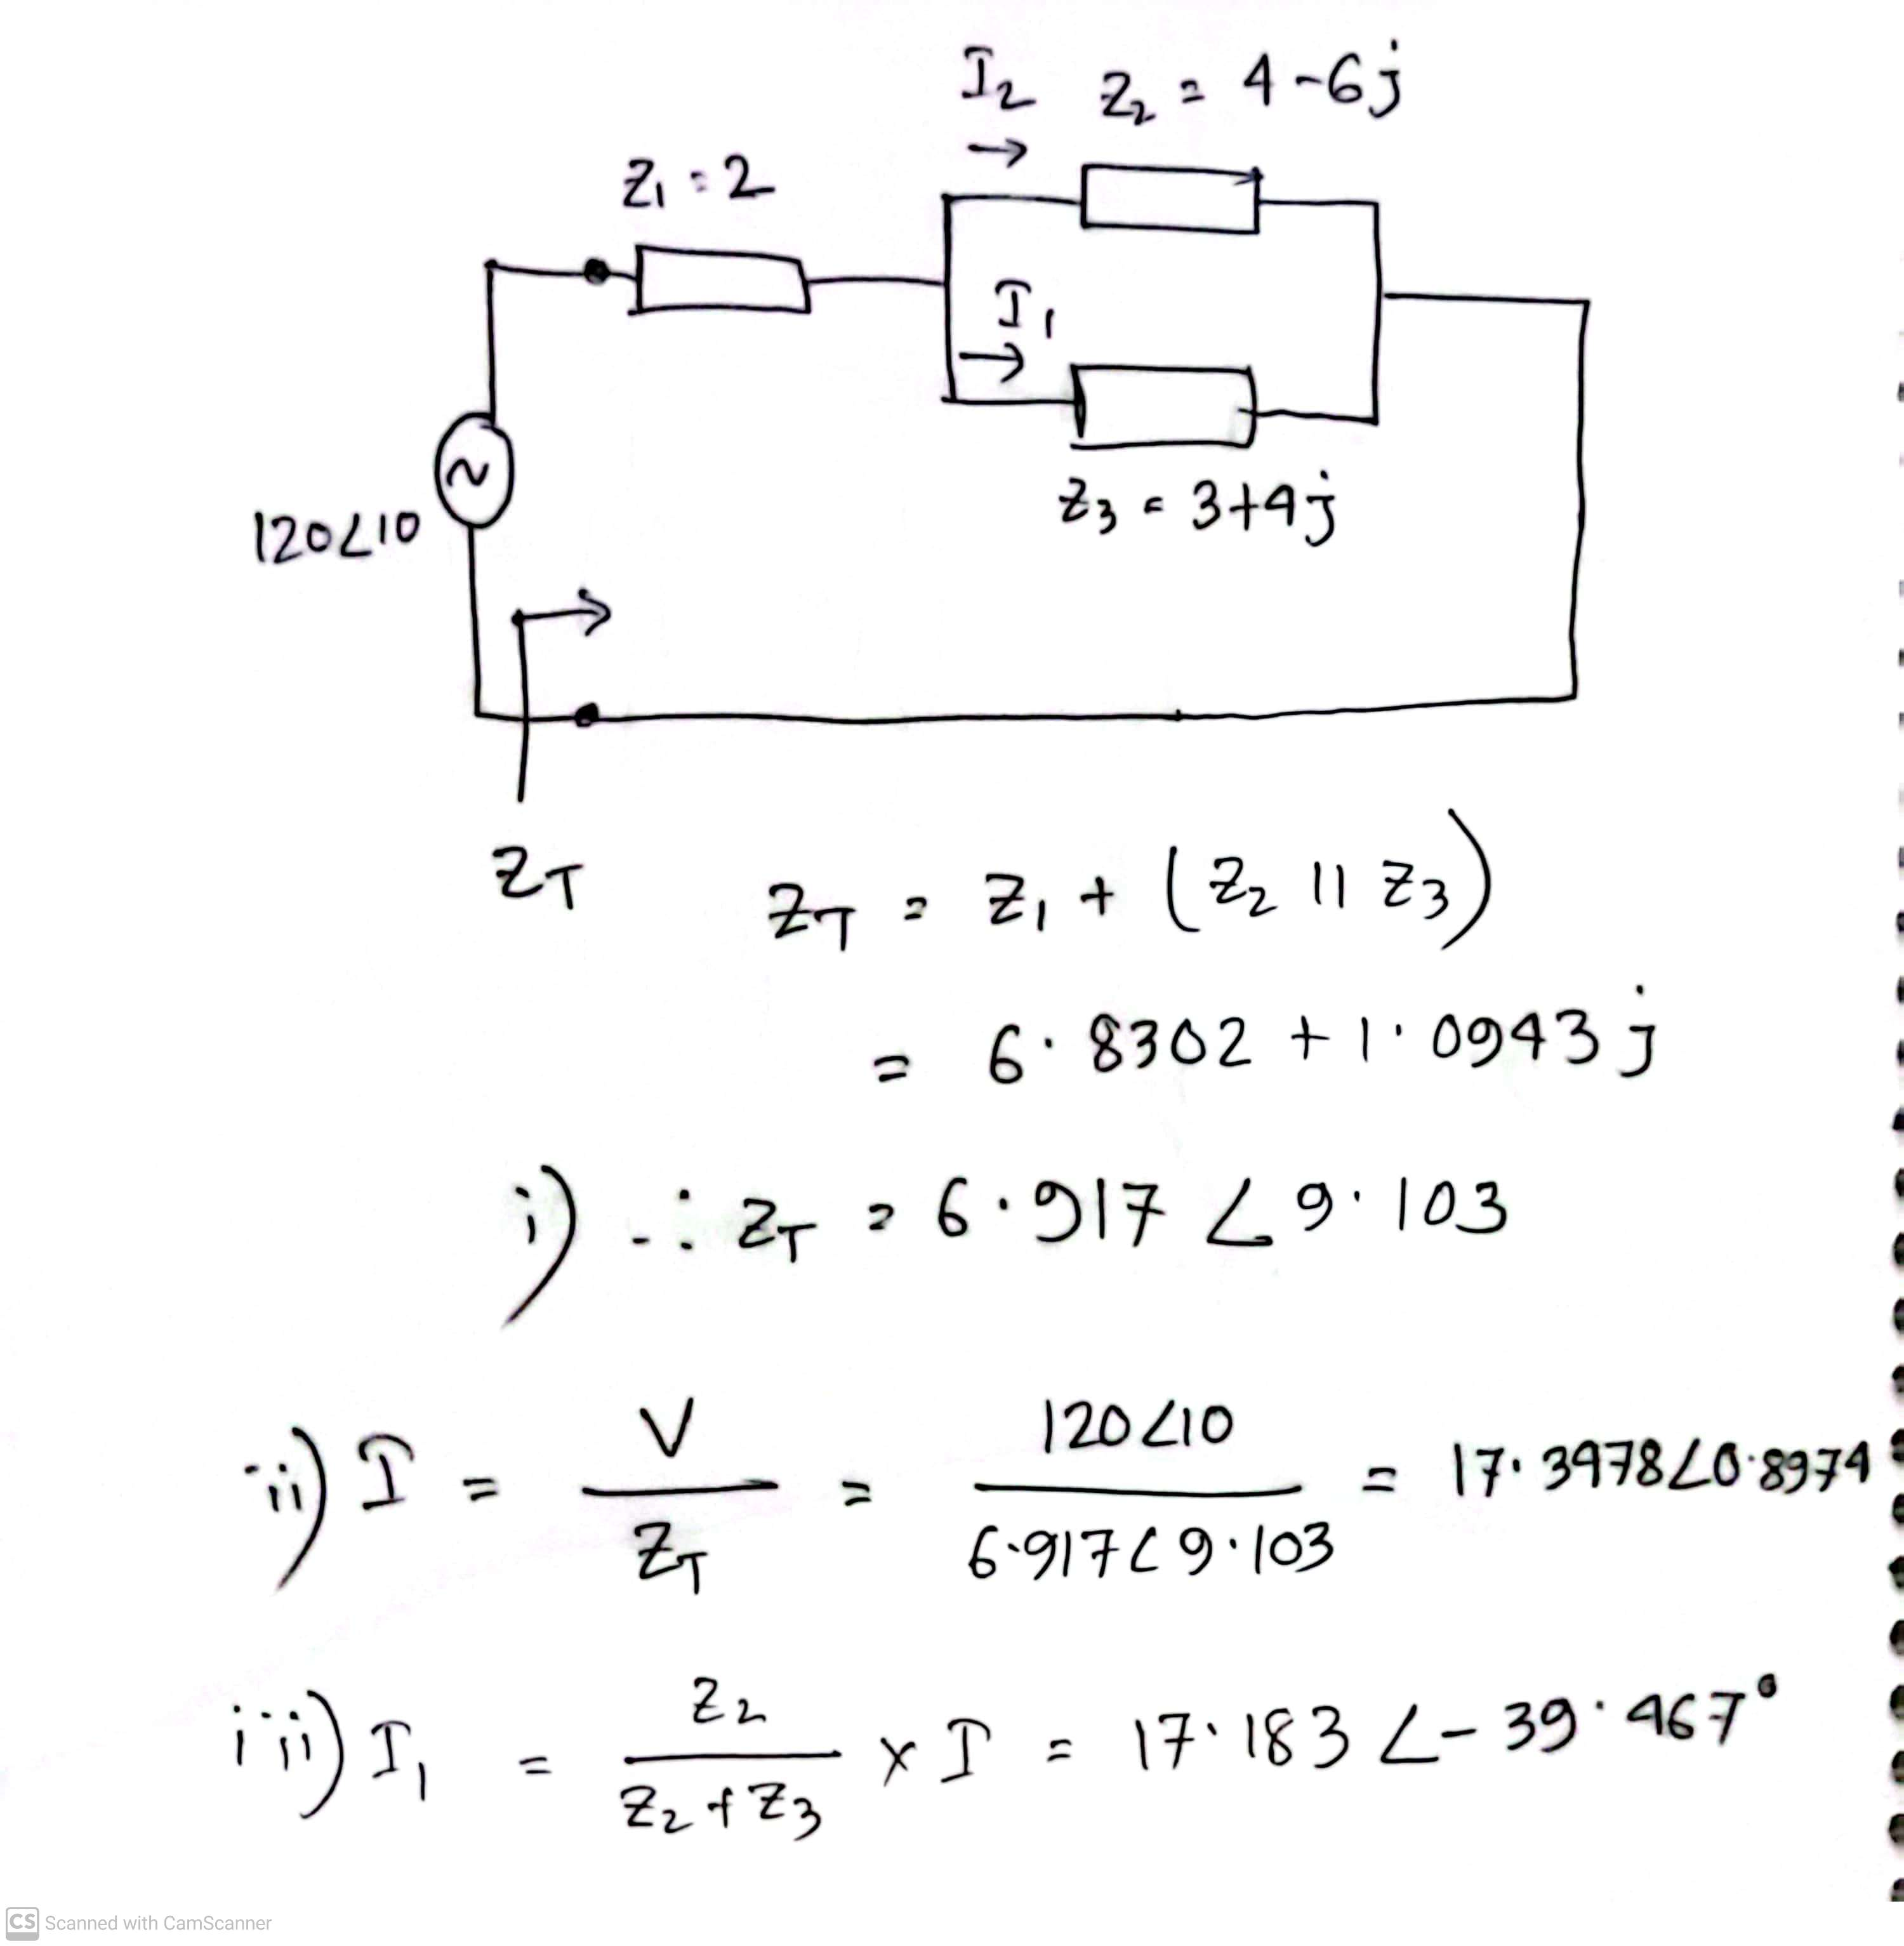 I₂ Z₂ = 4-6j
→
Z₁ = 2
I₁
→
Z₃ = 3+4j
120∠10
~
→
Z_T
Z_T = Z₁ + (Z₂ || Z₃)
= 6.8302 + 1.0943j
i) ∴ Z_T = 6.917 ∠9.103
ii) I = V / Z_T = 120∠10 / 6.917∠9.103 = 17.3478∠0.8974
iii) I₁ = Z₂ / Z₂+Z₃ × I = 17.183 ∠-39.467°
CS Scanned with CamScanner